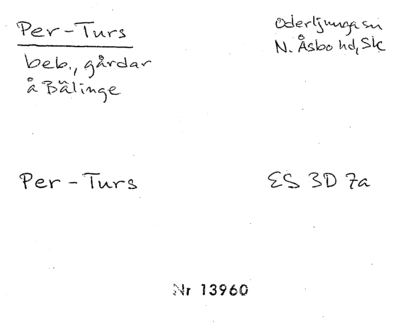 Per-Turs
Oderljunga sn
N. Åsbo hd, Sk
beb., gårdar
å Bälinge
Per-Turs
ES 3D 7a
Nr 13960